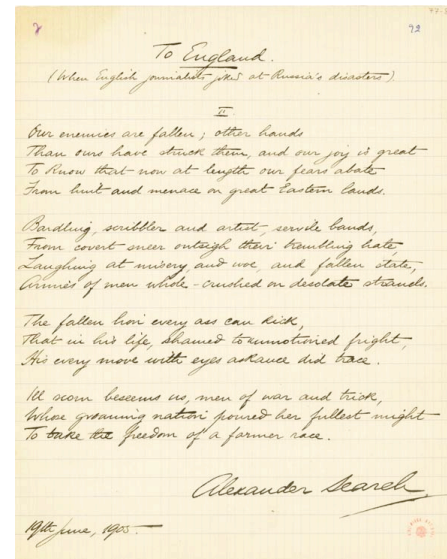 92
To England.
(When English journalists joked at Russia's disasters)
II
Our enemies are fallen; other hands
Than ours have struck them, and our joy is great
To know that now at length our fears abate
From hint and menace on great Eastern lands.
Bardling, scribbler and artist, servile bands,
From covert sneer outsigh their trembling hate,
Laughing at misery, and woe, and fallen state,
Armies of men whole-crushed on desolate strands.
The fallen lion every ass can kick,
That in his life, shamed to unmotioned fright,
His every move with eyes askance did trace.
Ill scorn beseems us, men of war and trick,
Whose groaning nation poured her fullest might
To take the freedom of a farmer race.
Alexander Search
19th June, 1905.